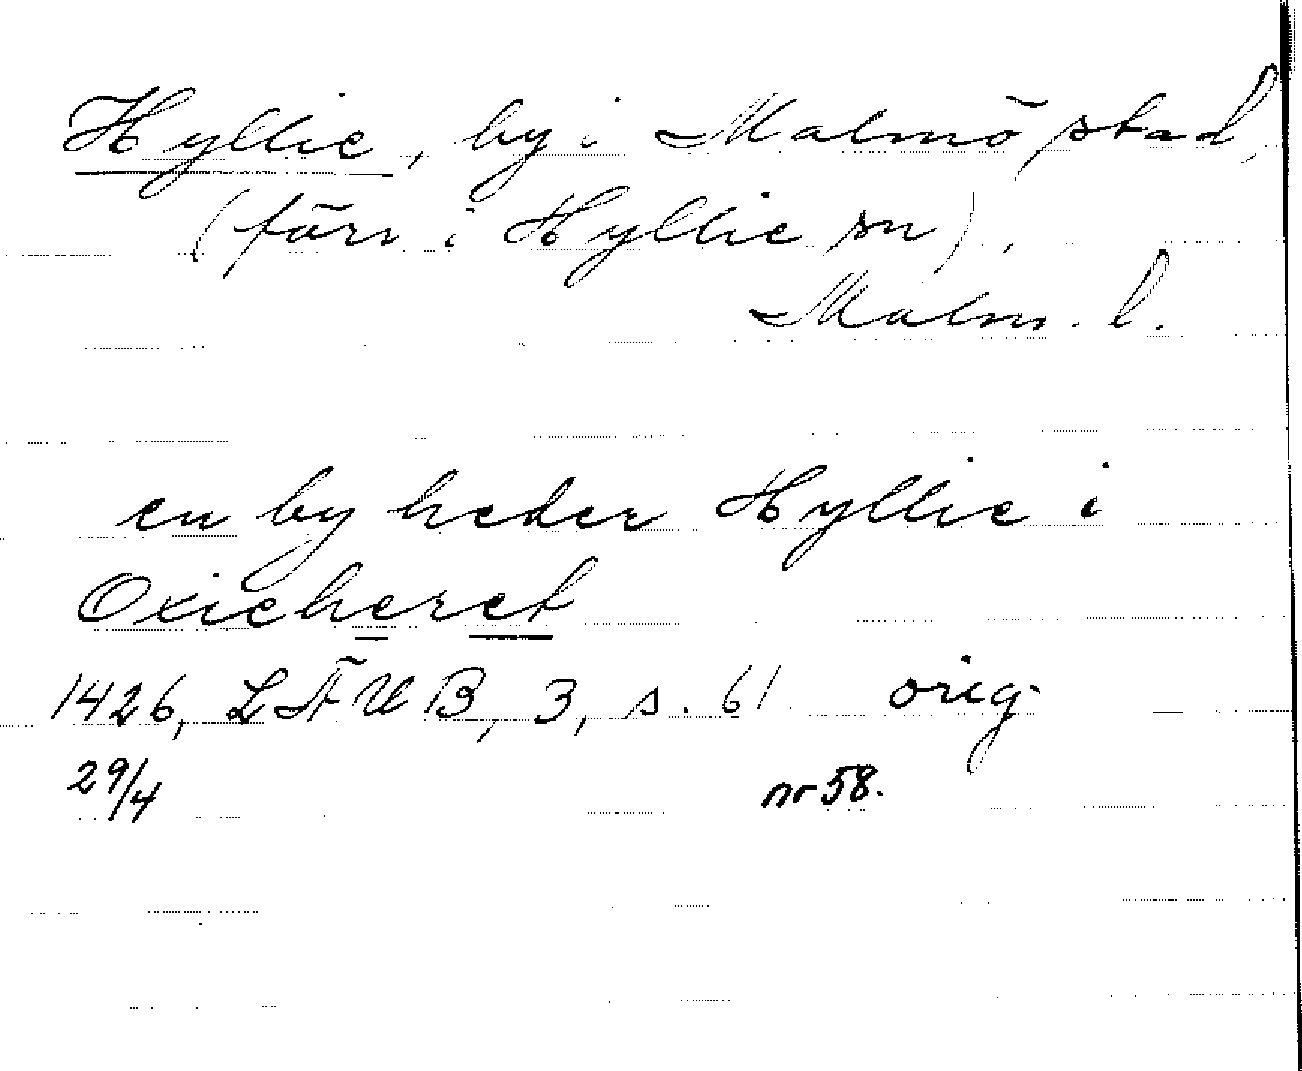 Hyllie, by i Malmö stad,
(förr i Hyllie sn).
Malm. l.
en by heder Hyllie i
Oxieheret
1426, LÄUB, 3, s. 61 orig.
29/4 nr 58.